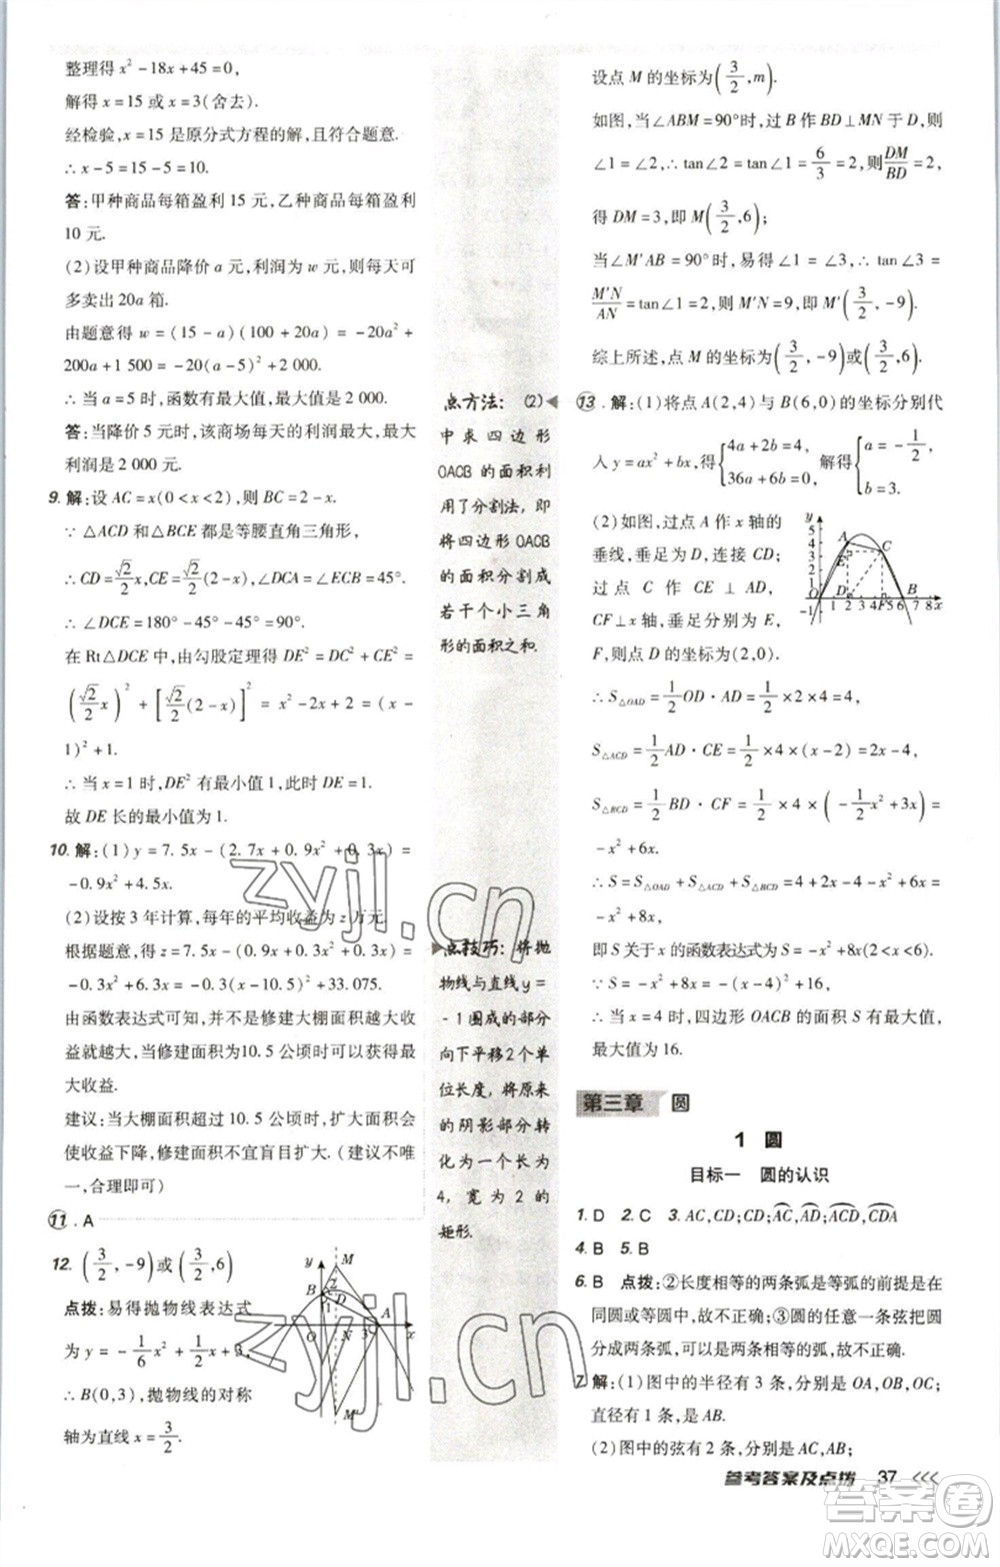 整理得 x²-18x+45=0,
解得 x=15 或 x=3(舍去).
经检验,x=15 是原分式方程的解,且符合题意.
∴ x-5=15-5=10.
答:甲种商品每箱盈利 15 元,乙种商品每箱盈利
10 元.
(2)设甲种商品降价 a 元,利润为 w 元,则每天可
多卖出 20a 箱.
由题意得 w=(15-a)(100+20a)=-20a²+
200a+1 500=-20(a-5)²+2 000.
∴ 当 a=5 时,函数有最大值,最大值是 2 000.
答:当降价 5 元时,该商场每天的利润最大,最大
利润是 2 000 元.
9. 解:设 AC=x(0<x<2),则 BC=2-x.
∵ △ACD 和△BCE 都是等腰直角三角形,
∴ CD=√2/2 x,CE=√2/2(2-x),∠DCA=∠ECB=45°.
∴ ∠DCE=180°-45°-45°=90°.
在 Rt△DCE 中,由勾股定理得 DE²=DC²+CE²=
(√2/2 x)²+[√2/2(2-x)]²=x²-2x+2=(x-
1)²+1.
∴ 当 x=1 时,DE² 有最小值1,此时 DE=1.
故 DE 长的最小值为 1.
10. 解:(1)y=7.5x-(2.7x+0.9x²+0.3x)=
-0.9x²+4.5x.
(2)设按 3 年计算,每年的平均收益为 z 万元.
根据题意,得 z=7.5x-(0.9x+0.3x²+0.3x)=
-0.3x²+6.3x=-0.3(x-10.5)²+33.075.
由函数表达式可知,并不是修建大棚面积越大收
益就越大,当修建面积为10.5 公顷时可获得最
大收益.
建议:当大棚面积超过 10.5 公顷时,扩大面积会
使收益下降,修建面积不宜盲目扩大.(建议不唯
一,合理即可)
11. A
12. (3/2,-9)或(3/2,6)
点拨:易得抛物线表达式
为 y=-1/6x²+1/2x+3,
∴ B(0,3),抛物线的对称
轴为直线 x=3/2.
y M B 2 D 1 A O N 3 x M'
点方法:(2)
中求四边形
OACB 的面积利
用了分割法,即
将四边形 OACB
的面积分割成
若干个小三角
形的面积之和.
点技巧:将抛
物线与直线 y=
-1围成的部分
向下平移2个单
位长度,将原来
的阴影部分转
化为一个长为
4,宽为2的
矩形.
设点 M 的坐标为(3/2,m).
如图,当∠ABM=90°时,过 B 作 BD⊥MN 于 D,则
∠1=∠2,∴ tan∠2=tan∠1=6/3=2,则DM/BD=2,
得 DM=3,即 M(3/2,6);
当∠M'AB=90°时,易得∠1=∠2,∴
M'N/AN=tan∠1=2,∴ M'N=9,即 M'(3/2,-9).
综上所述,点 M 的坐标为(3/2,-9)或(3/2,6).
13. 解:(1)将点 A(2,4)与 B(6,0)的坐标分别代
入 y=ax²+bx,得{4a+2b=4,36a+6b=0. 解得{a=-1/2,b=3.
(2)如图,过点 A 作 x 轴的
垂线,垂足为 D,连接 CD;
过点 C 作 CE⊥AD,
CF⊥x轴,垂足分别为 E,
F,则点 D 的坐标为(2,0).
y 5 4 3 2 1 A C E O D F B 1 2 3 4 5 6 7 8 x
∴ S△OAD=1/2OD·AD=1/2×2×4=4,
S△ACD=1/2AD·CE=1/2×4×(x-2)=2x-4,
S△BCD=1/2BD·CF=1/2×4×(-1/2x²+3x)=
-x²+6x.
∴ S=S△OAD+S△ACD+S△BCD=4+2x-4-x²+6x=
-x²+8x.
即 S 关于 x 的函数表达式为 S=-x²+8x(2<x<6).
∵ S=-x²+8x=-(x-4)²+16,
∴ 当 x=4 时,四边形 OACB 的面积 S 有最大值,
最大值为 16.
第三章 圆
1 圆
目标一 圆的认识
1. D 2. C 3. AC,CD;CD⌒,AC⌒,AD⌒;ACD⌒,CDA⌒
4. B 5. B
6. B 点拨:②长度相等的两条弧是等弧的前提是在
同圆或等圆中,故不正确;③圆的任意一条弦把圆
分成两条弧,可以是两条相等的弧,故不正确.
7. 解:(1)图中的半径有 3 条,分别是 OA,OB,OC;
直径有 1 条,是 AB.
(2)图中的弦有 2 条,分别是 AC,AB;
参考答案及点拨 37
zyjl.cn
zyjl.cn
答案圈
MXQE.COM